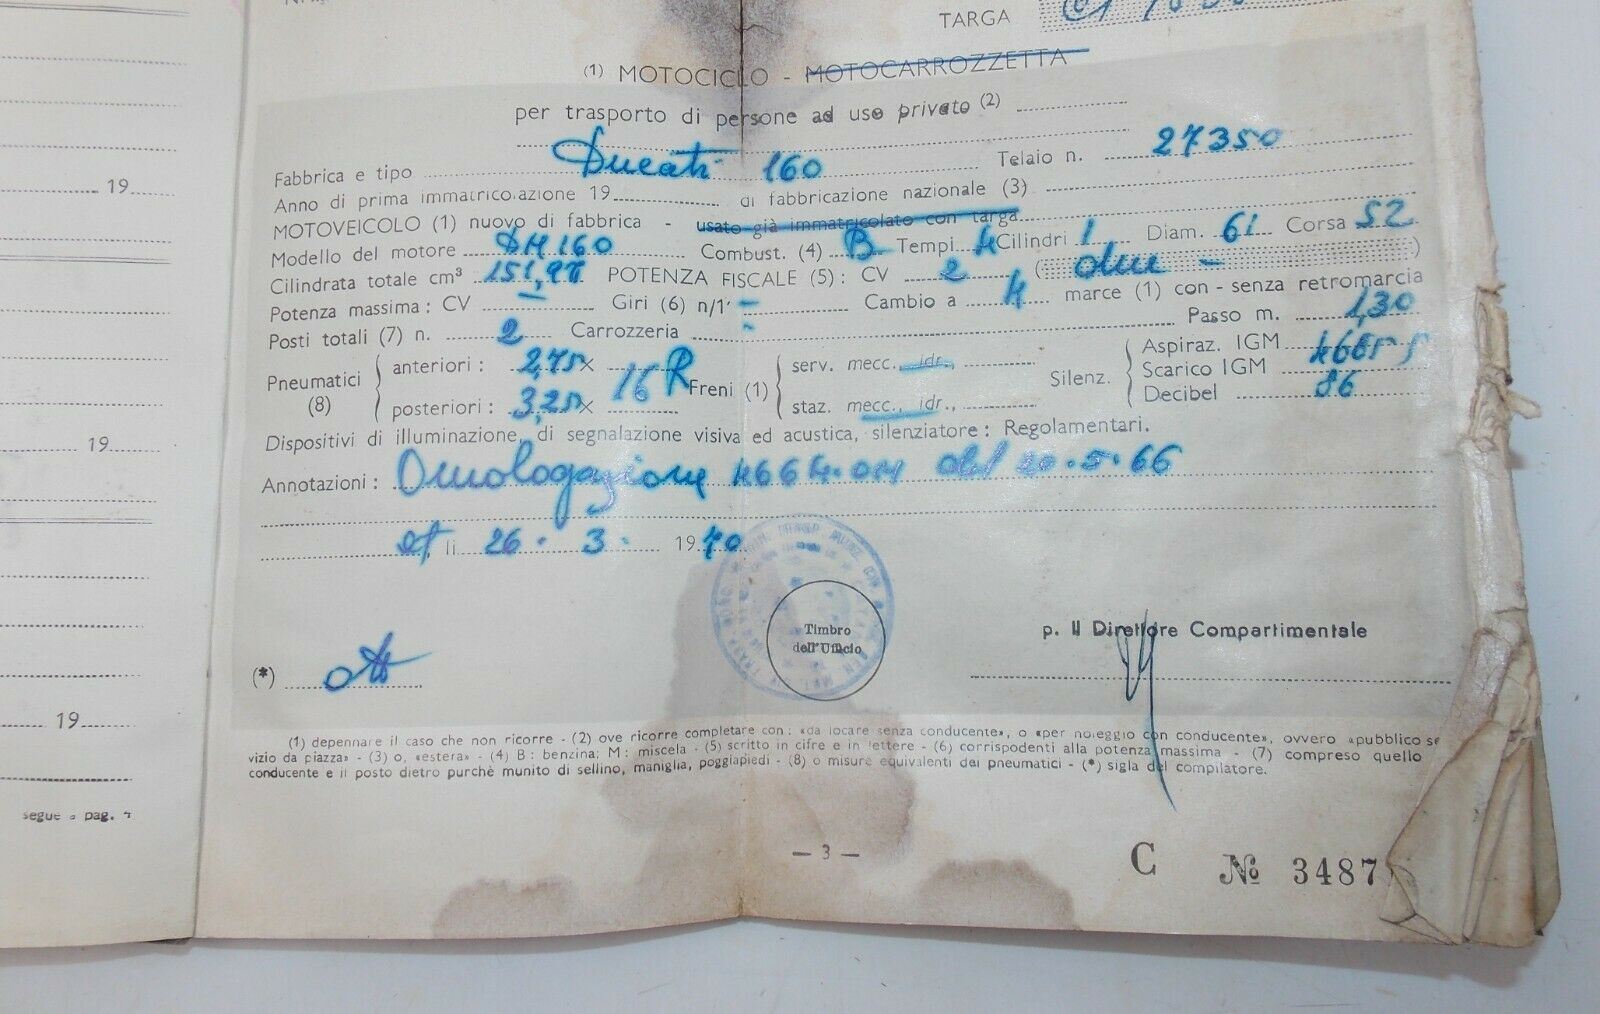 TARGA
(1) MOTOCICLO - MOTOCARROZZETTA
per trasporto di persone ad uso privato (2)
Fabbrica e tipo Ducati 160 Telaio n. 27350
Anno di prima immatricolazione 19 di fabbricazione nazionale (3)
MOTOVEICOLO (1) nuovo di fabbrica - usato già immatricolato con targa
Modello del motore DM 160 Combust. (4) B Tempi 4 Cilindri 1 Diam. 61 Corsa 52
Cilindrata totale cm³ 151,98 POTENZA FISCALE (5) : CV 2 ( due - )
Potenza massima : CV - Giri (6) n/1' - Cambio a 4 marce (1) con - senza retromarcia
Posti totali (7) n. 2 Carrozzeria - Passo m. 1,30
Pneumatici (8) anteriori : 2,75 x 16 R Freni (1) serv. mecc., idr., Silenz. Aspiraz. IGM
posteriori : 3,25 x staz. mecc., idr., Scarico IGM
Decibel 86
Dispositivi di illuminazione, di segnalazione visiva ed acustica, silenziatore : Regolamentari.
Annotazioni : Omologazione 4664.OM del 20.5.66
li 26. 3. 1970
Timbro
dell'Ufficio
p. Il Direttore Compartimentale
(*)
(1) depennare il caso che non ricorre - (2) ove ricorre completare con : «da locare senza conducente», o «per noleggio con conducente», ovvero «pubblico se
vizio da piazza» - (3) o, «estera» - (4) B : benzina; M : miscela - (5) scritto in cifre e in lettere - (6) corrispodenti alla potenza massima - (7) compreso quello
conducente e il posto dietro purchè munito di sellino, maniglia, poggiapiedi - (8) o misure equivalenti dei pneumatici - (*) sigla del compilatore.
— 3 —
C № 3487
19
19
19
segue a pag. 4